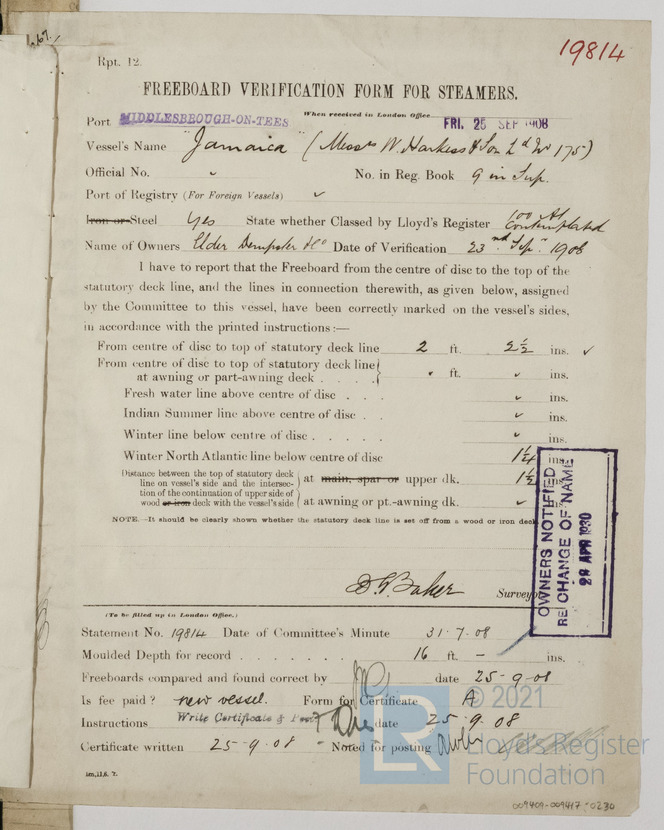 1,67.
19814
Rpt. 12.
FREEBOARD VERIFICATION FORM FOR STEAMERS.
When received in London Office
Port MIDDLESBROUGH-ON-TEES FRI. 25 SEP 1908
Vessel's Name "Jamaica" (Messrs W. Harkess & Son Ld No 175)
Official No. No. in Reg. Book 9 in Sup.
Port of Registry (For Foreign Vessels)
Iron or Steel Yes State whether Classed by Lloyd's Register 100 A1 Contemplated
Name of Owners Elder Dempster & Co Date of Verification 23rd Sep. 1908
I have to report that the Freeboard from the centre of disc to the top of the
statutory deck line, and the lines in connection therewith, as given below, assigned
by the Committee to this vessel, have been correctly marked on the vessel's sides,
in accordance with the printed instructions :—
From centre of disc to top of statutory deck line 2 ft. 2½ ins. ✓
From centre of disc to top of statutory deck line
at awning or part-awning deck . . . . ft. ins.
Fresh water line above centre of disc . . . ins.
Indian Summer line above centre of disc . . ins.
Winter line below centre of disc . . . . . ins.
Winter North Atlantic line below centre of disc 1¼ ins.
Distance between the top of statutory deck
line on vessel's side and the intersec-
tion of the continuation of upper side of
wood or iron deck with the vessel's side
at main, spar or upper dk. 1½ ins.
at awning or pt.-awning dk. ins.
NOTE.—It should be clearly shown whether the statutory deck line is set off from a wood or iron deck
OWNERS NOTIFIED
RE CHANGE OF NAME
29 APR 1930
D. G. Baker Surveyor
(To be filled up in London Office.)
Statement No. 19814 Date of Committee's Minute 31.7.08
Moulded Depth for record . . . . . . . 16 ft. – ins.
Freeboards compared and found correct by date 25-9-08
Is fee paid? new vessel. Form for Certificate A
Instructions Write Certificate & date 25.9.08
Certificate written 25-9-08 Noted for posting
1m,13,6. T.
LR
© 2021
Lloyd's Register
Foundation
009409-009417-0230